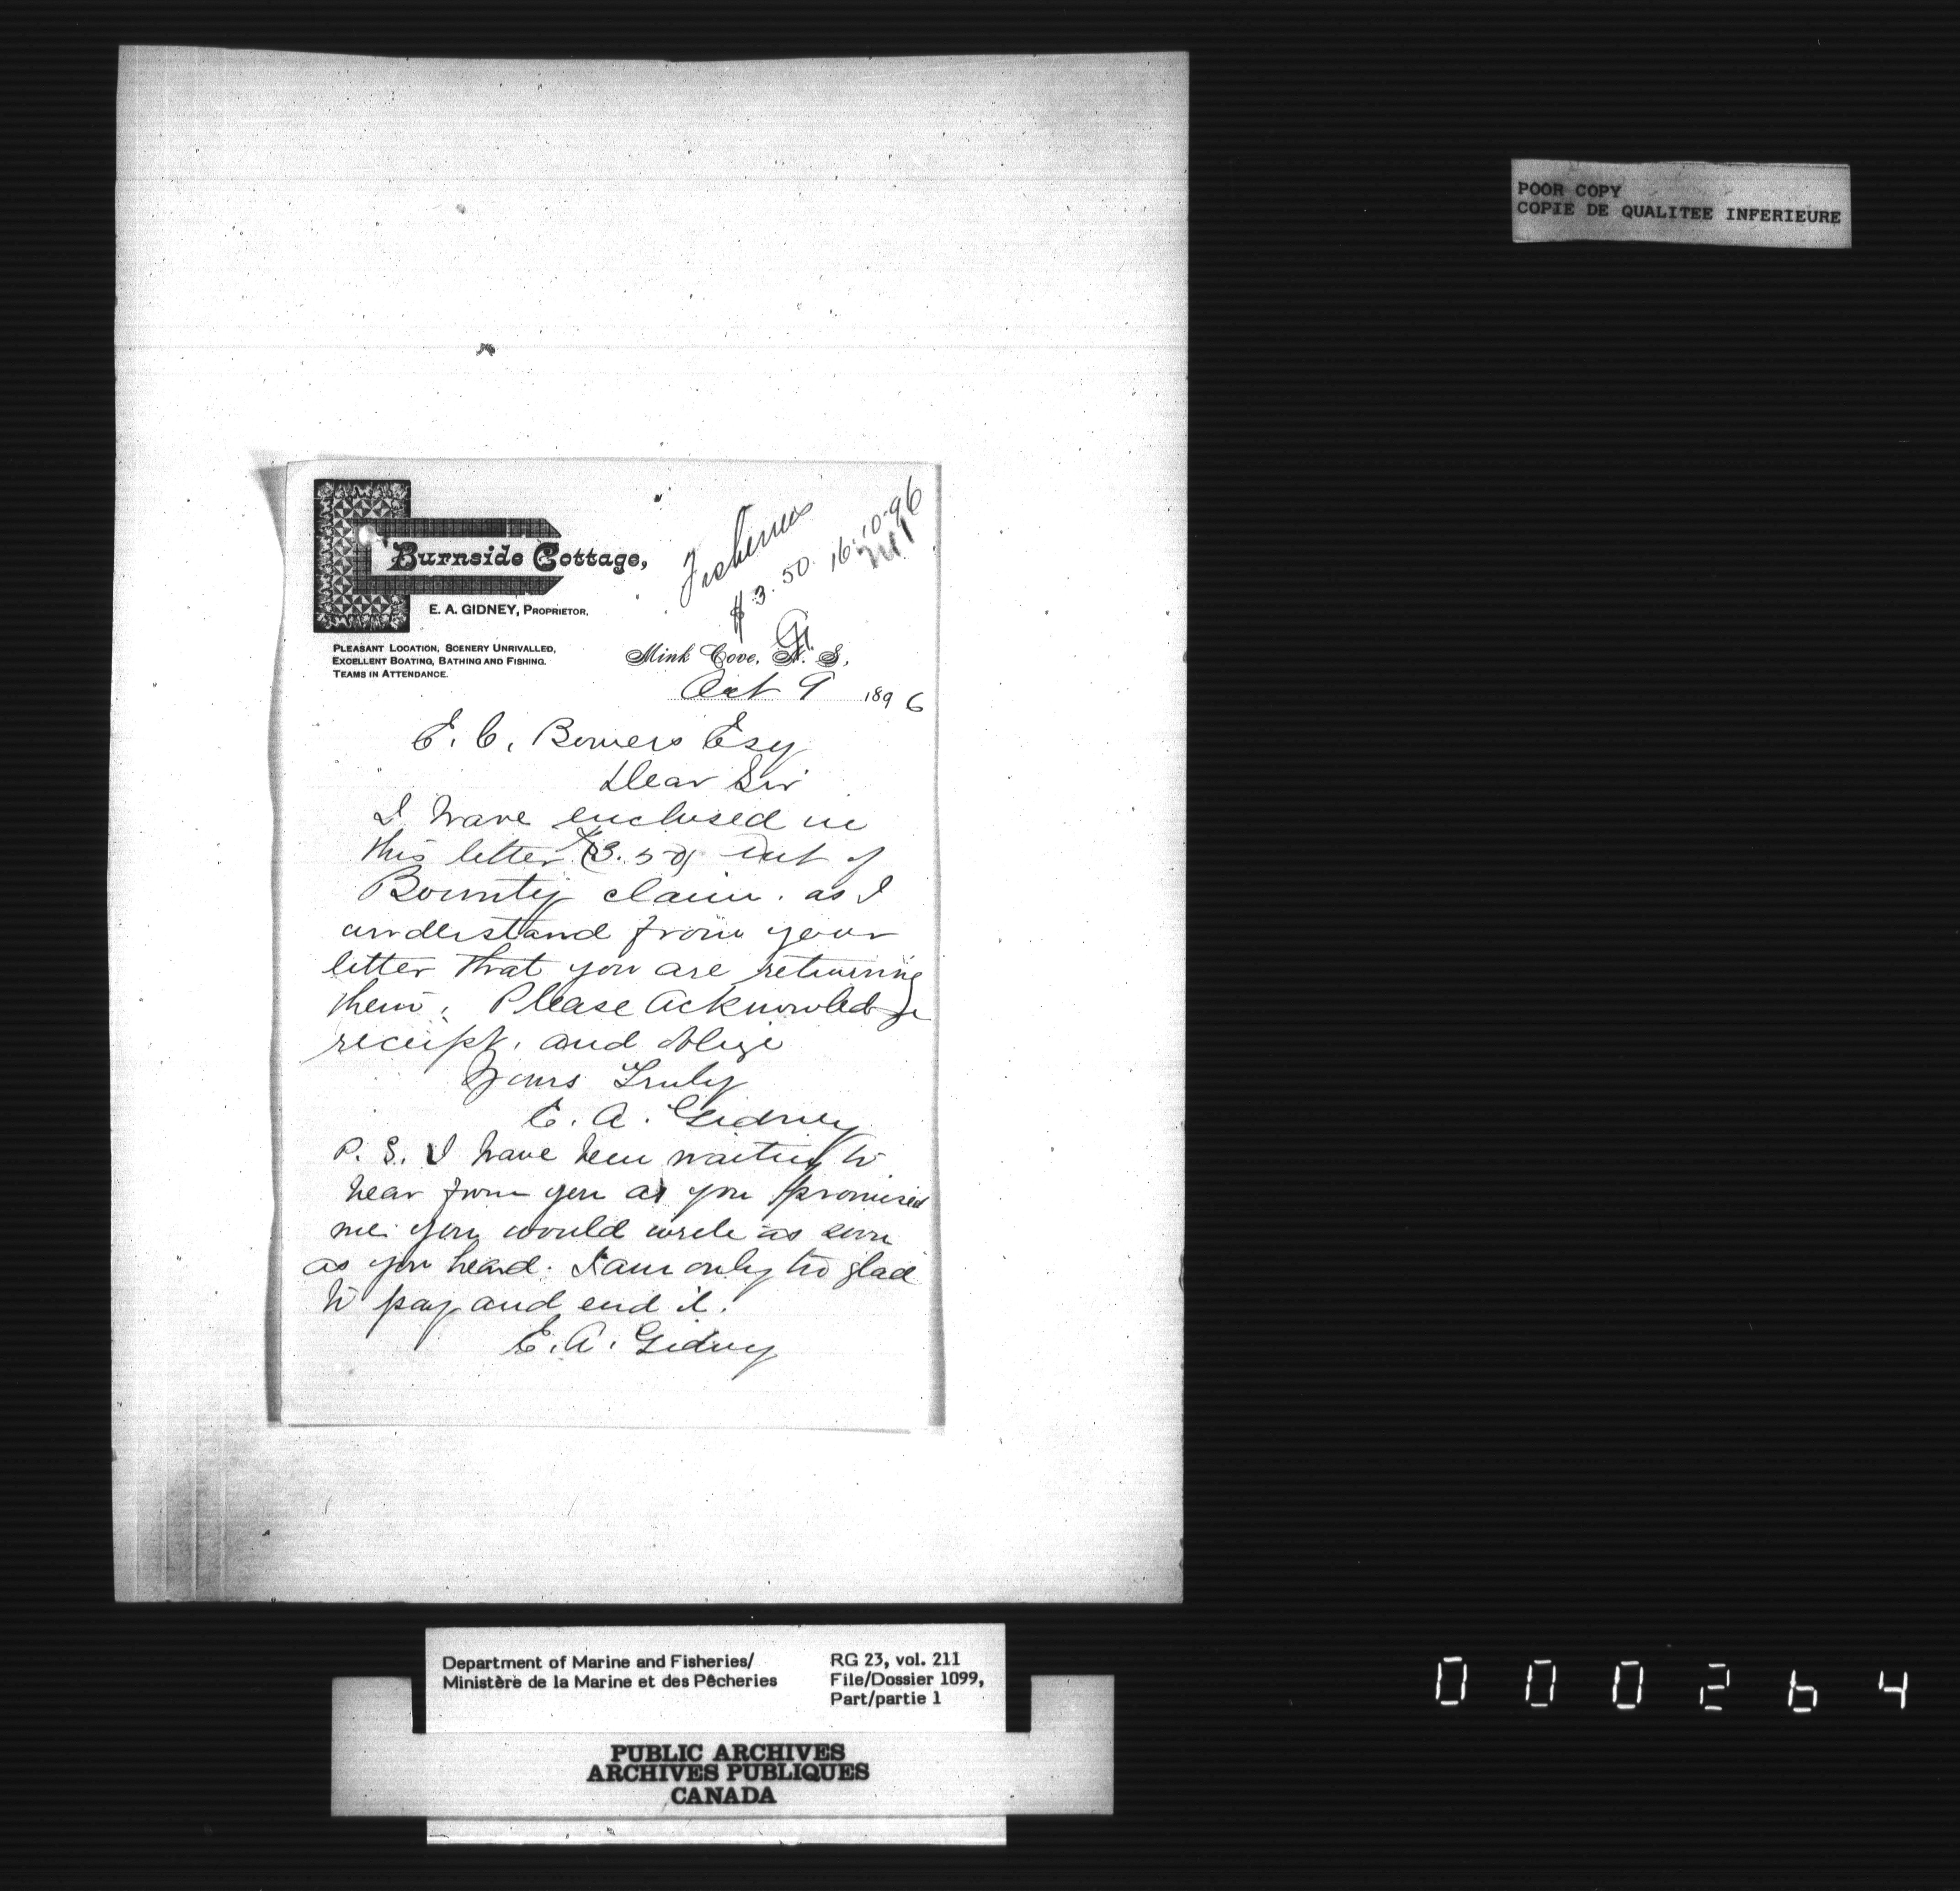 POOR COPY
COPIE DE QUALITEE INFERIEURE
Burnside Cottage,
E. A. GIDNEY, PROPRIETOR.
PLEASANT LOCATION, SCENERY UNRIVALLED,
EXCELLENT BOATING, BATHING AND FISHING.
TEAMS IN ATTENDANCE.
Fisheries
$3.50. 16.10.96
Mink Cove, N. S.,
Oct 9 1896
E. C. Bowers Esq
Dear Sir
I have enclosed in
this letter ($3.50) out of
Bounty claim. as I
understand from your
letter that you are returning
them. Please Acknowledge
receipt. and Oblige
Yours Truly
E. A. Gidney
P. S. I have been waiting to
hear from you as you promised
me you would write as soon
as you heard. I am only too glad
to pay and end it.
E. A. Gidney
Department of Marine and Fisheries/
Ministère de la Marine et des Pêcheries
RG 23, vol. 211
File/Dossier 1099,
Part/partie 1
PUBLIC ARCHIVES
ARCHIVES PUBLIQUES
CANADA
000264